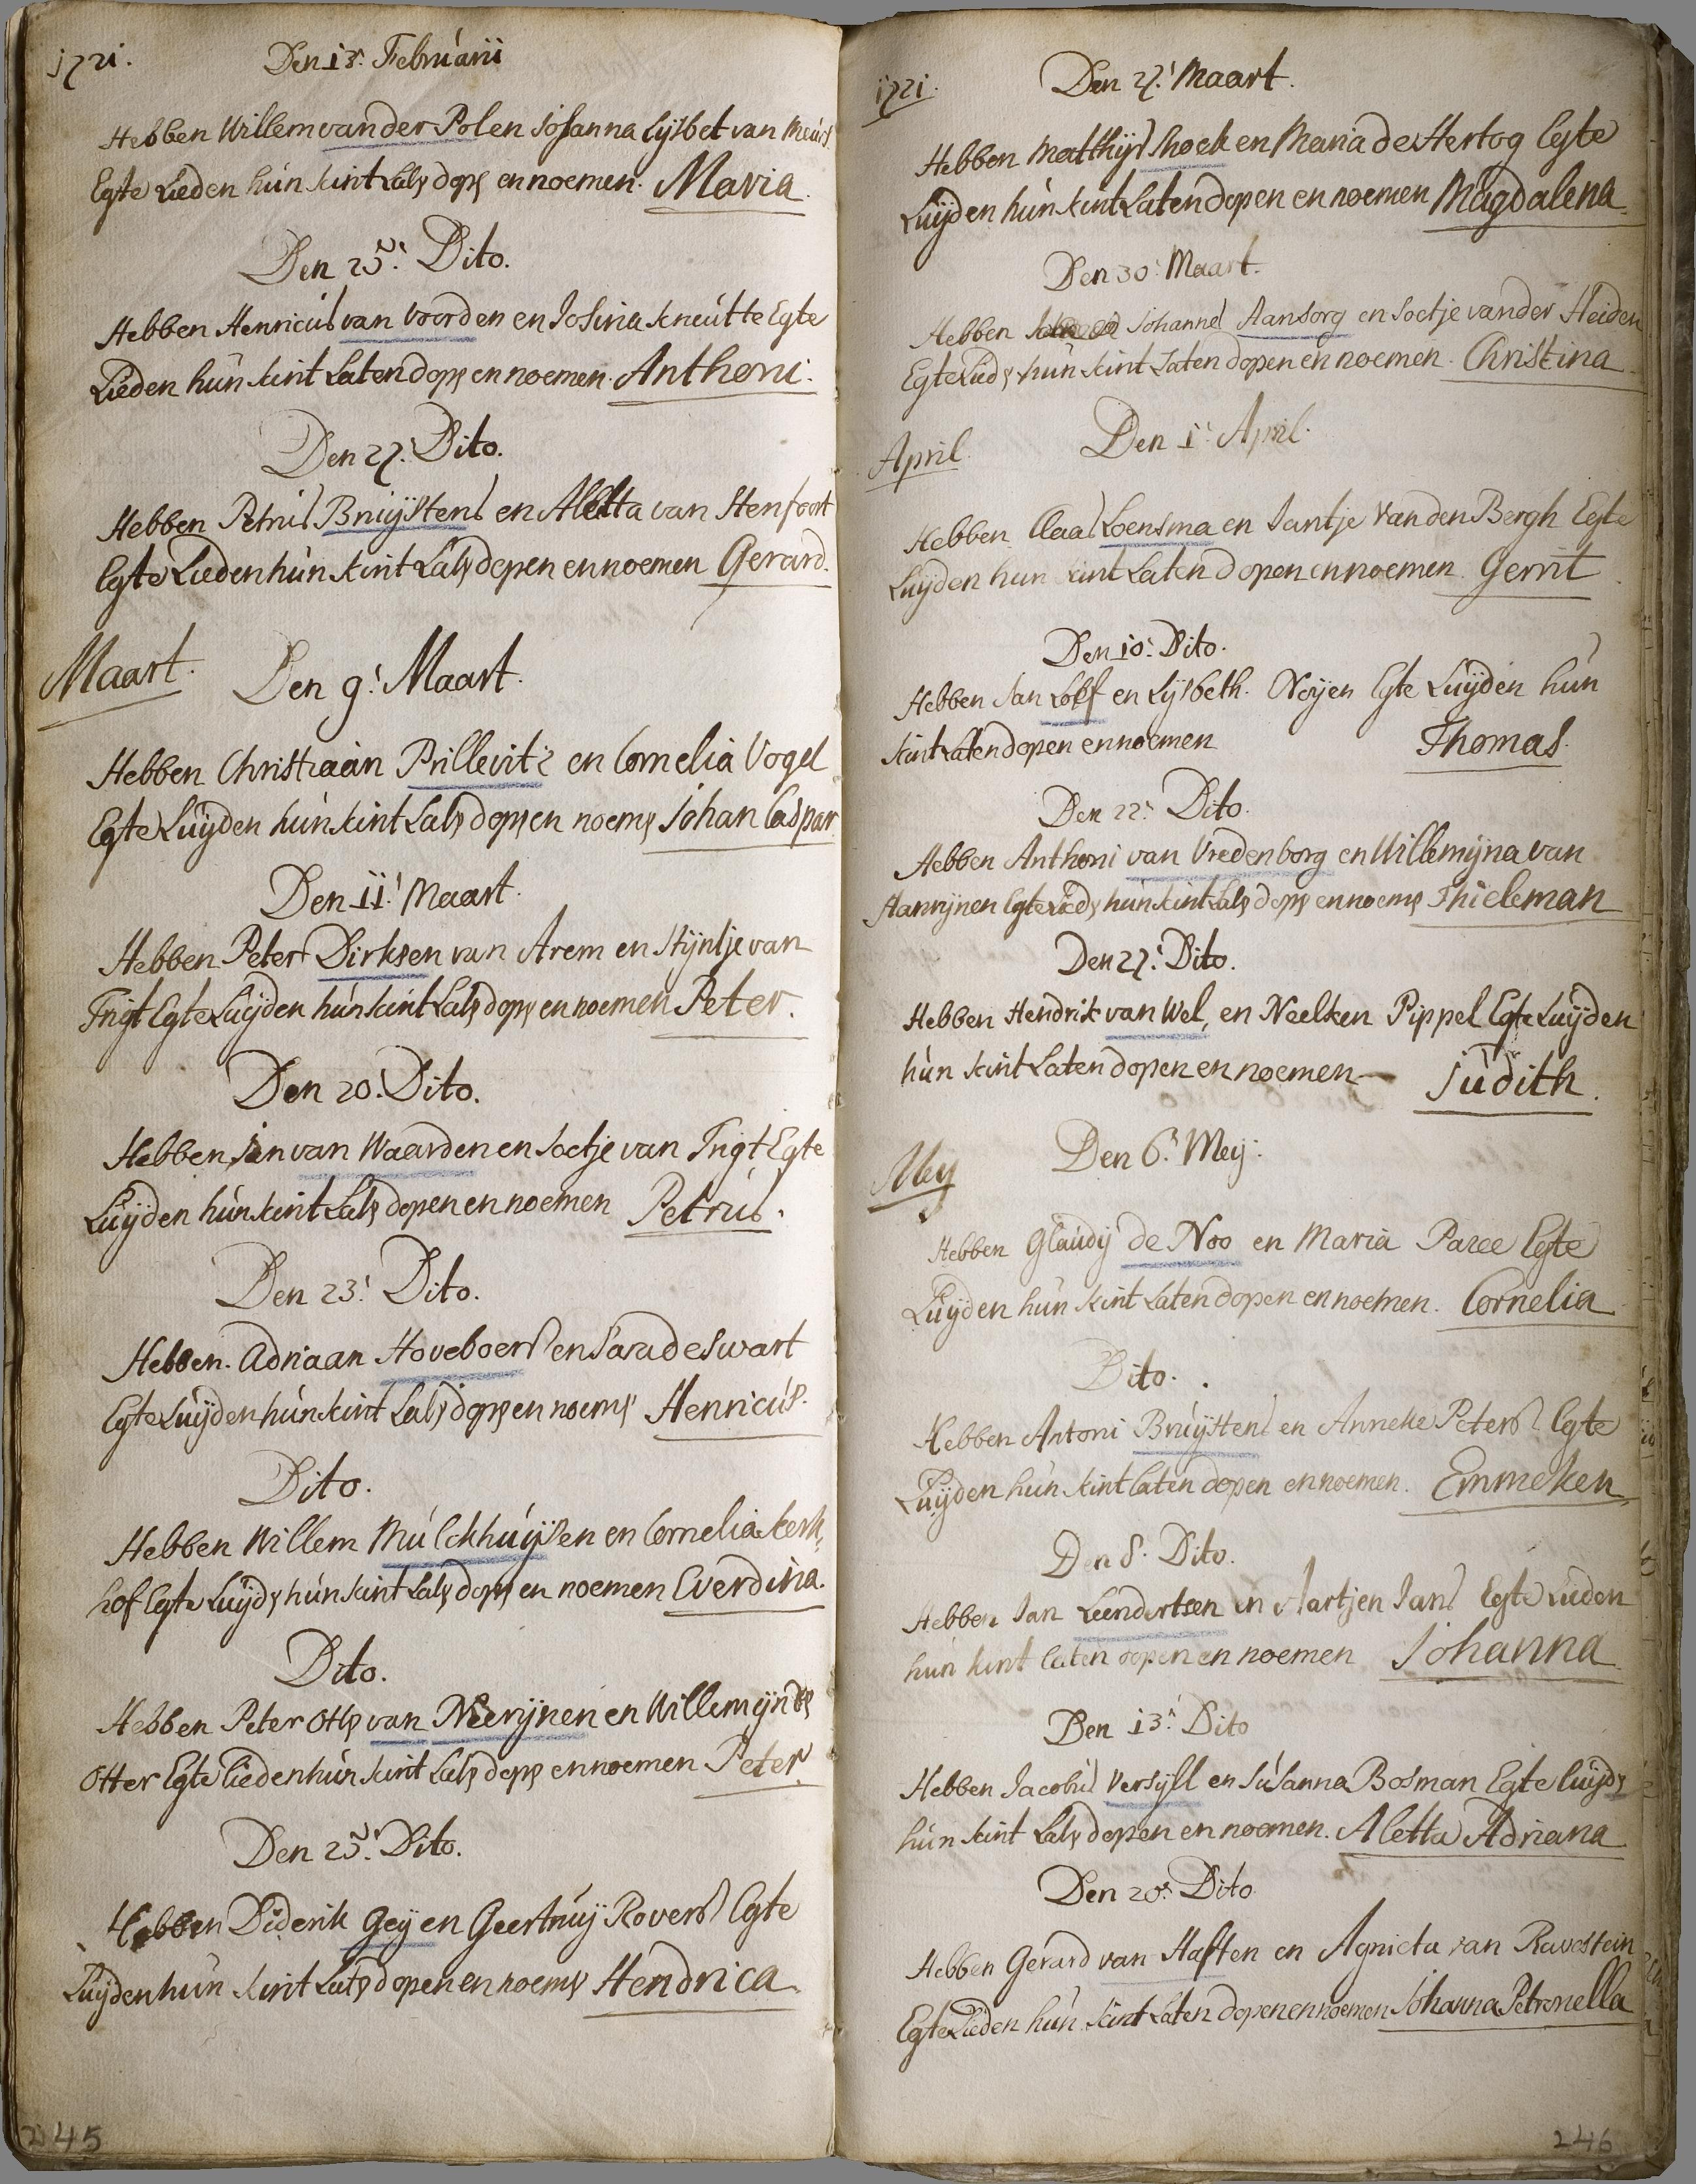 1721. Den 13.' Februarii
Hebben Willem van der Pol en Josanna Lijsbet van Meurs
Egte Lieden hún kint Laty dopy en noemen. Maria.
Den 25.' Dito.
Hebben Henricus van Voorden en Josina Kneutte Egte
Lieden hún kint Laten dopy en noemen. Anthoni.
Den 27.' Dito.
Hebben Petrus Bruijstens en Aletta van Stenfoort
Egte Lieden hún kint Laty dopen en noemen Gerard.
Maart. Den 9.' Maart.
Hebben Christiaan Prillevitz en Cornelia Vogel
Egte Luijden hún kint Laty dopy en noemy Johan Caspar.
Den 11.' Maart.
Hebben Peter Dirksen van Arem en Stijntje van
Trigt Egte Luijden hún kint Laty dopy en noemen Peter.
Den 20.' Dito.
Hebben Jan van Waarden en Soetje van Trigt Egte
Luijden hún kint Laty dopen en noemen Petrus.
Den 23.' Dito.
Hebben. Adriaan Hoveboers en Sara de Swart
Egte Luijden hún kint Laty dopy en noemy Henricus.
Dito.
Hebben Willem Múlckhúijsen en Cornelia Kerk,,
hof Egte Luijdy hún kint Laty dopy en noemen Everdina.
Dito.
Hebben Peter Otty van Neerijnen en Willemijn
Otter Egte Lieden hún kint Laty dopy en noemen Peter.
Den 25.' Dito.
Hebben Diderik Geij en Geertruij Rovers Egte
Luijden hún kint Laty dopen en noemy Hendrica
245
1721. Den 27.' Maart.
Hebben Matthijs Hoek en Maria de Hertog Egte
Luijden hún kint Laten dopen en noemen Magdalena.
Den 30.' Maart.
Hebben Johannes Aansorg en Soetje vander Heiden
Egte Liedy hún kint Laten dopen en noemen. Christina
April. Den 1.' April.
Hebben Claas Loensma en Jantje Van den Bergh Egte
Luijden hun kint Laten dopen en noemen. Gerrit
Den 10.' Dito.
Hebben Jan Lolf en Lijsbeth. Noijen Egte Luijden hún
kint Laten dopen en noemen Thomas.
Den 22.' Dito.
Hebben Anthoni van Vredenborg en Willemijna van
Haarijnen Egte Liedy hún kint Laty dopy en noemy Thieleman
Den 27.' Dito.
Hebben Hendrik van Wel, en Neelken Pippel Egte Luijden
hún kint Laten dopen en noemen — Júdith.
Meij Den 6.' Meij.
Hebben Glaudij de Noo en Maria Paree Egte
Luijden hún kint Laten dopen en noemen. Cornelia
Dito.
Hebben Antoni Bruijstens en Anneke Peters Egte
Luijden hún kint laten dopen en noemen. Emmeken
Den 8. Dito.
Hebben Jan Leendertsen en Aartjen Jans Egte Lieden
hún kint laten dopen en noemen Johanna
Den 13.' Dito
Hebben Jacobus Versijll en Súsanna Bosman Egte luijdy
hún kint Laty dopen en noemen. Aletta Adriana
Den 20.' Dito
Hebben Gerard van Haften en Agnieta van Ravestein
Egte Lieden hún kint Laten dopen en noemen Johanna Petronella
246